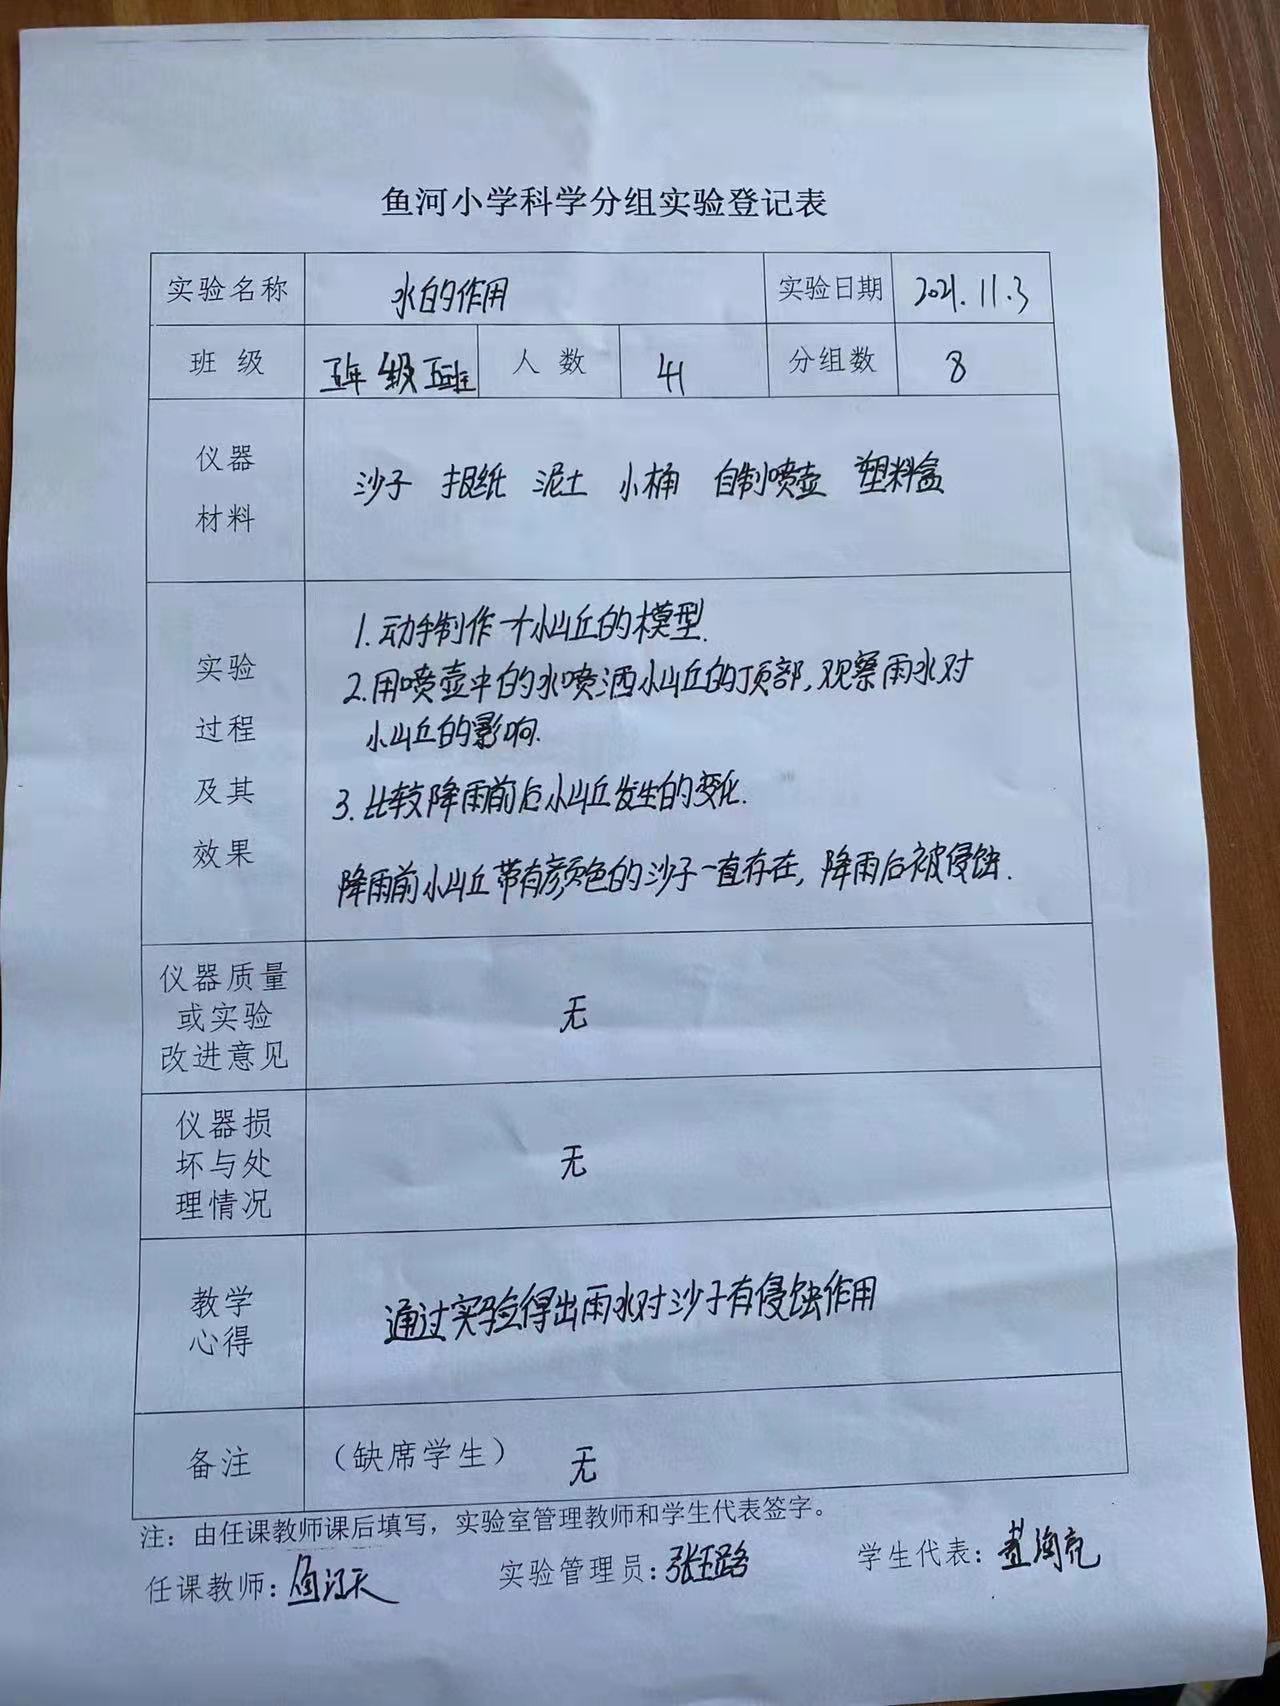 鱼河小学科学分组实验登记表
实验名称 水的作用 实验日期 2021.11.3
班级 五年级五班 人数 41 分组数 8
仪器
材料
沙子 报纸 泥土 小桶 自制喷壶 塑料盒
实验
过程
及其
效果
1.动手制作一个小山丘的模型.
2.用喷壶中的水喷洒小山丘的顶部,观察雨水对
小山丘的影响.
3.比较降雨前后小山丘发生的变化.
降雨前小山丘带有颜色的沙子一直存在,降雨后被侵蚀.
仪器质量
或实验
改进意见
无
仪器损
坏与处
理情况
无
教学
心得
通过实验得出雨水对沙子有侵蚀作用
备注 (缺席学生) 无
注：由任课教师课后填写，实验室管理教师和学生代表签字。
任课教师: 实验管理员: 张玉路 学生代表: